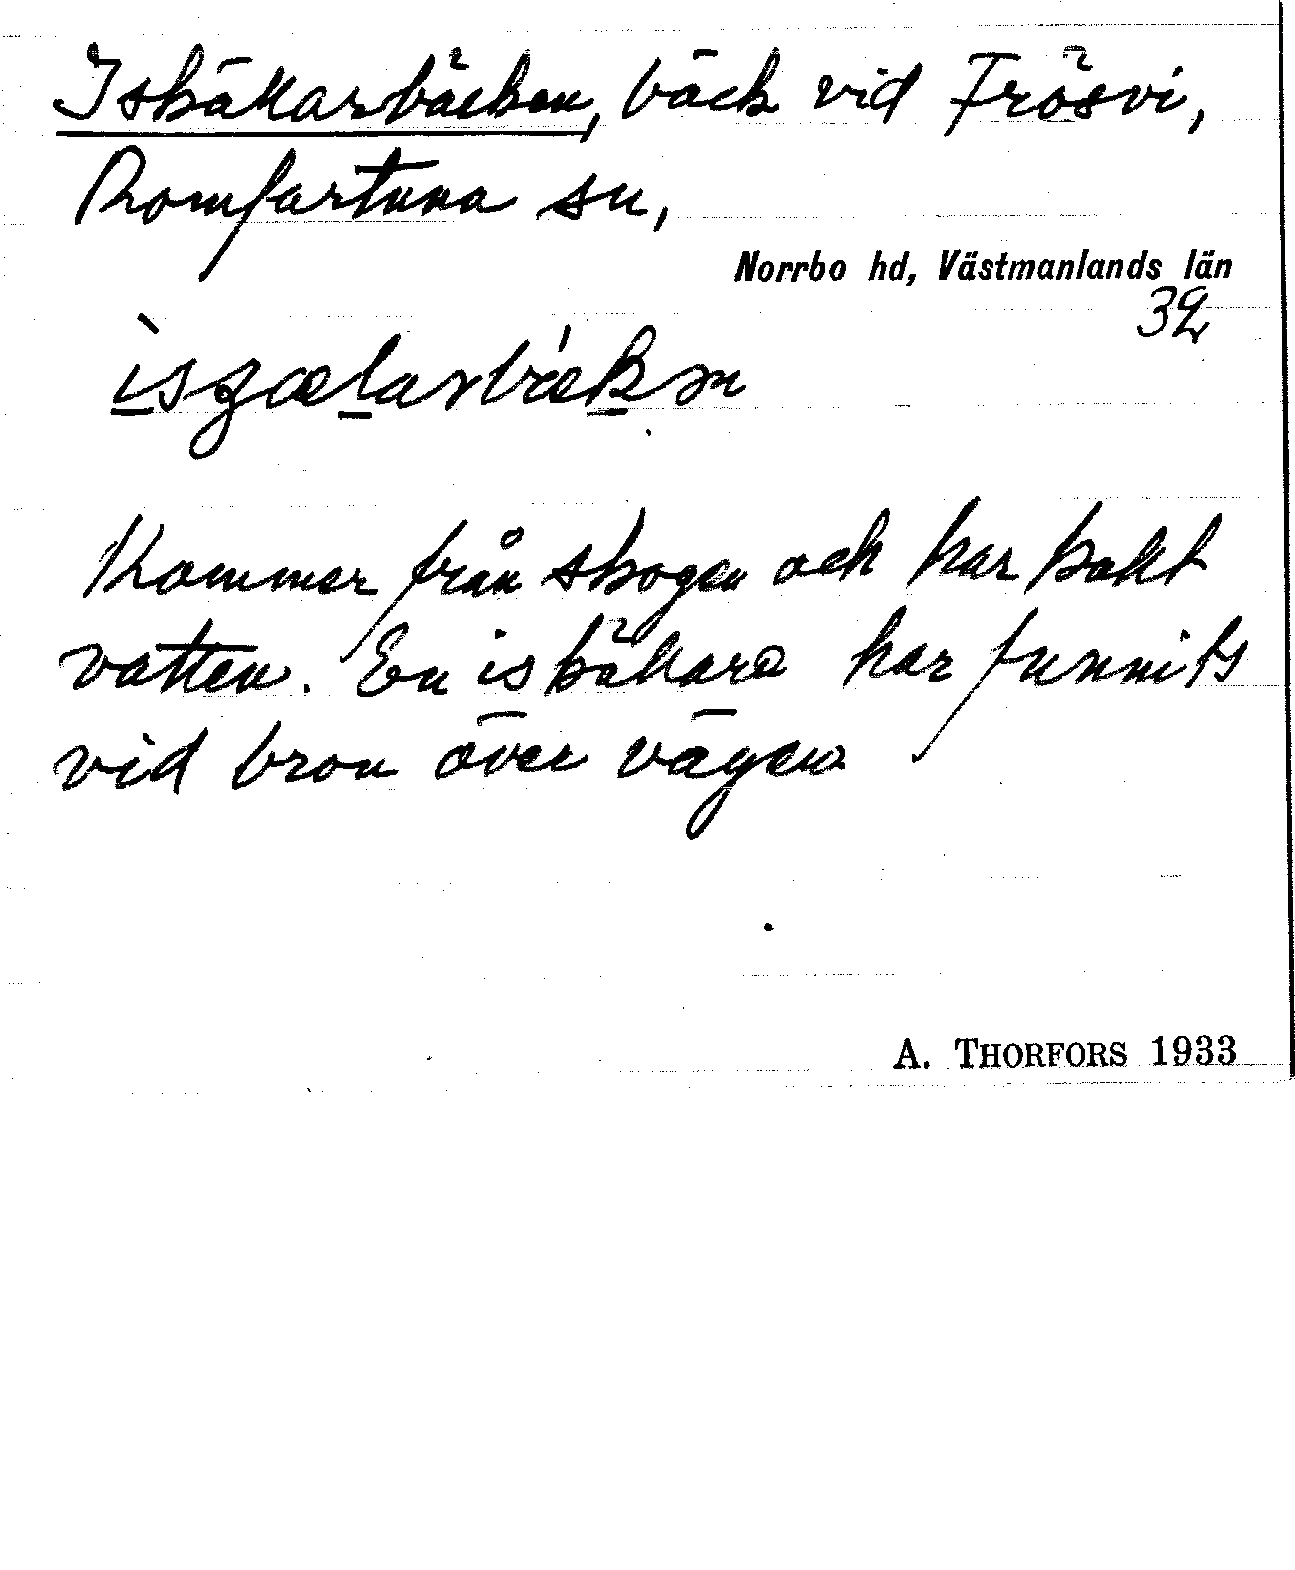 Iskällarbäcken, bäck vid Frösvi,
Romfartuna sn,
Norrbo hd, Västmanlands län
32
Kommer från skogen och har kallt
vatten. En iskällare har funnits
vid bron över vägen
A. THORFORS 1933